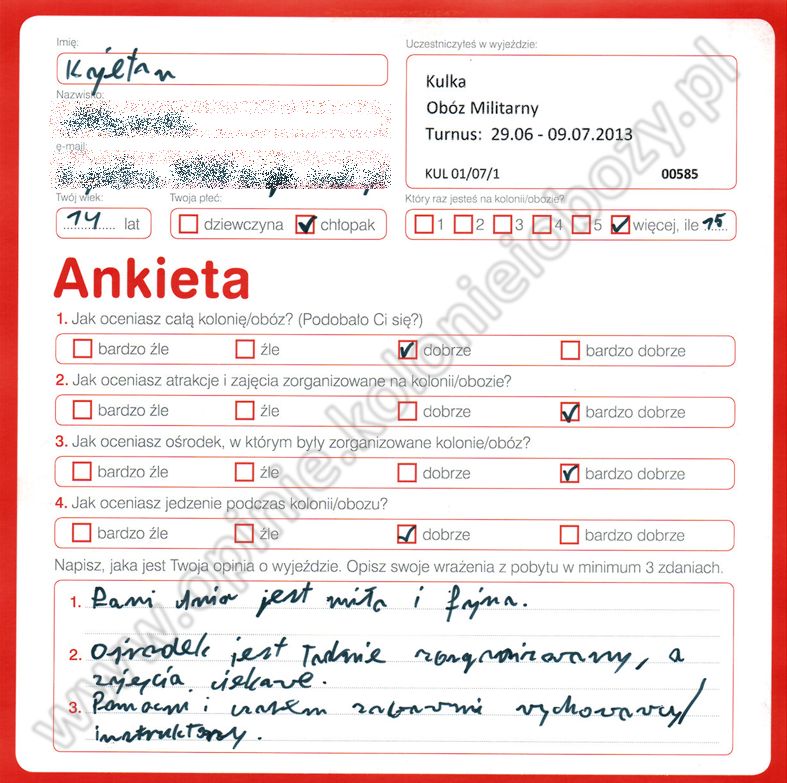 Imię:
Kajetan
Uczestniczyłeś w wyjeździe:
Kulka
Obóz Militarny
Turnus: 29.06 - 09.07.2013
KUL 01/07/1 00585
Nazwisko:
e-mail:
Twój wiek:
14 lat
Twoja płeć:
dziewczyna chłopak
Który raz jesteś na kolonii/obozie?
1 2 3 4 5 więcej, ile 15
Ankieta
1. Jak oceniasz całą kolonię/obóz? (Podobało Ci się?)
bardzo źle źle dobrze bardzo dobrze
2. Jak oceniasz atrakcje i zajęcia zorganizowane na kolonii/obozie?
bardzo źle źle dobrze bardzo dobrze
3. Jak oceniasz ośrodek, w którym były zorganizowane kolonie/obóz?
bardzo źle źle dobrze bardzo dobrze
4. Jak oceniasz jedzenie podczas kolonii/obozu?
bardzo źle źle dobrze bardzo dobrze
Napisz, jaka jest Twoja opinia o wyjeździe. Opisz swoje wrażenia z pobytu w minimum 3 zdaniach.
1. Pani Ania jest miła i fajna.
2. Ośrodek jest ładnie zorganizowany, a
zajęcia ciekawe.
3. Pomocni i czasem zabawni wychowawcy/
instruktorzy.
www.opinie.kolonieiobozy.pl